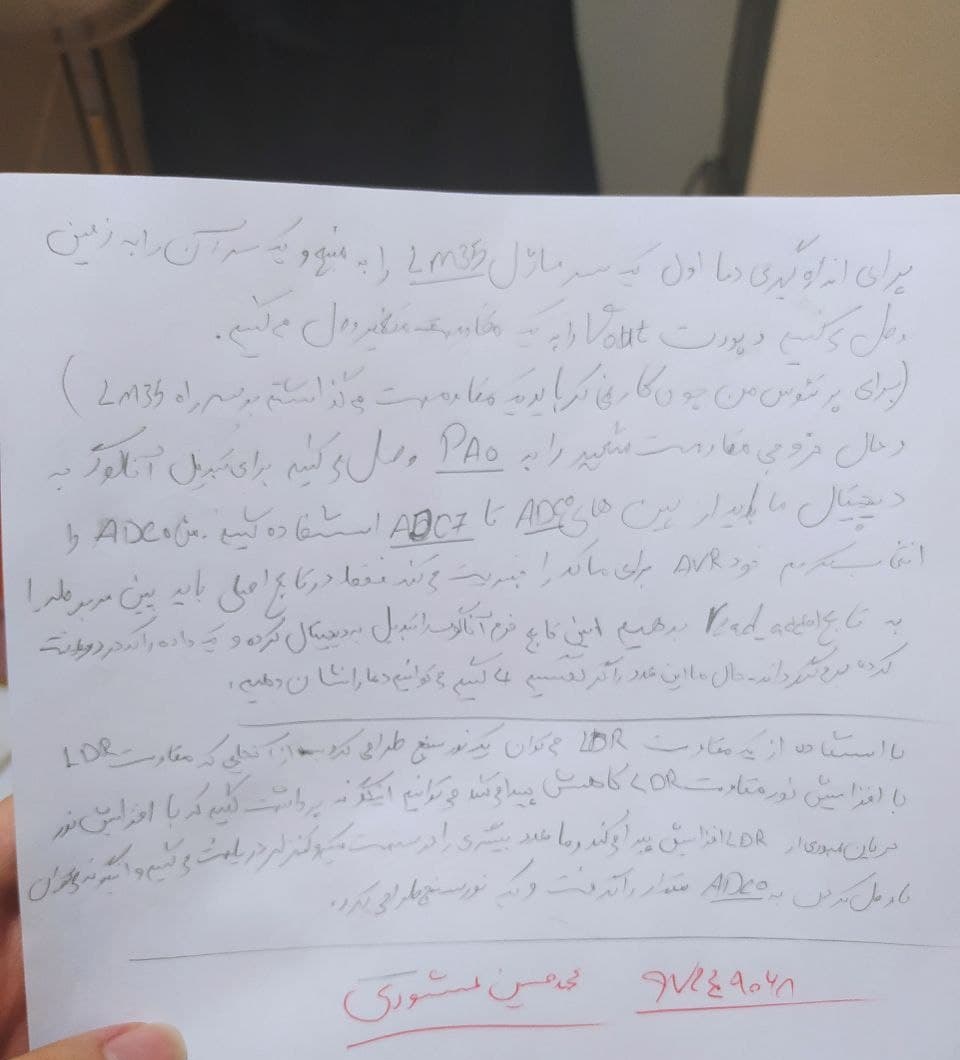 برای اندازه گیری دما اول یک سر ماژول LM35 را به منبع و یک سر آن را به زمین
وصل می کنیم و پورت Vout را به یک مقاومت متغیر وصل می کنیم.
(برای پرتئوس من چون کار نمی کرد باید یک مقاومت می گذاشتم بر سر راه LM35)
حال خروجی مقاومت متغیر را به PA0 وصل می کنیم برای تبدیل آنالوگ به
دیجیتال ما باید از پین های ADC0 تا ADC7 استفاده کنیم. من ADC0 را
انتخاب کردم خود AVR برای ما کد را می کند فقط در تابع اصلی باید پین مربوطه را
به تابع read_adc بدهیم این تابع فرم آنالوگ را تبدیل به دیجیتال کرده و یک داده را که در دریافت
کرده بر می گرداند. حال ما این عدد را اگر تقسیم 4 کنیم می توانیم دما را نشان دهیم.
با استفاده از یک مقاومت LDR می توان یک نور سنج طراحی کرد. از آنجایی که مقاومت LDR
با افزایش نور مقاومت LDR کاهش پیدا می کند می توانیم اینگونه برداشت کنیم که با افزایش نور
جریان عبوری از LDR افزایش پیدا می کند و ما عدد بیشتری را در سمت میکروکنترلر دریافت می کنیم و اینگونه می توان
با وصل کردن به ADC0 مقدار را گرفت و یک نور سنج طراحی کرد.
محمدحسین ۹۷۲۴۹۰۶۸